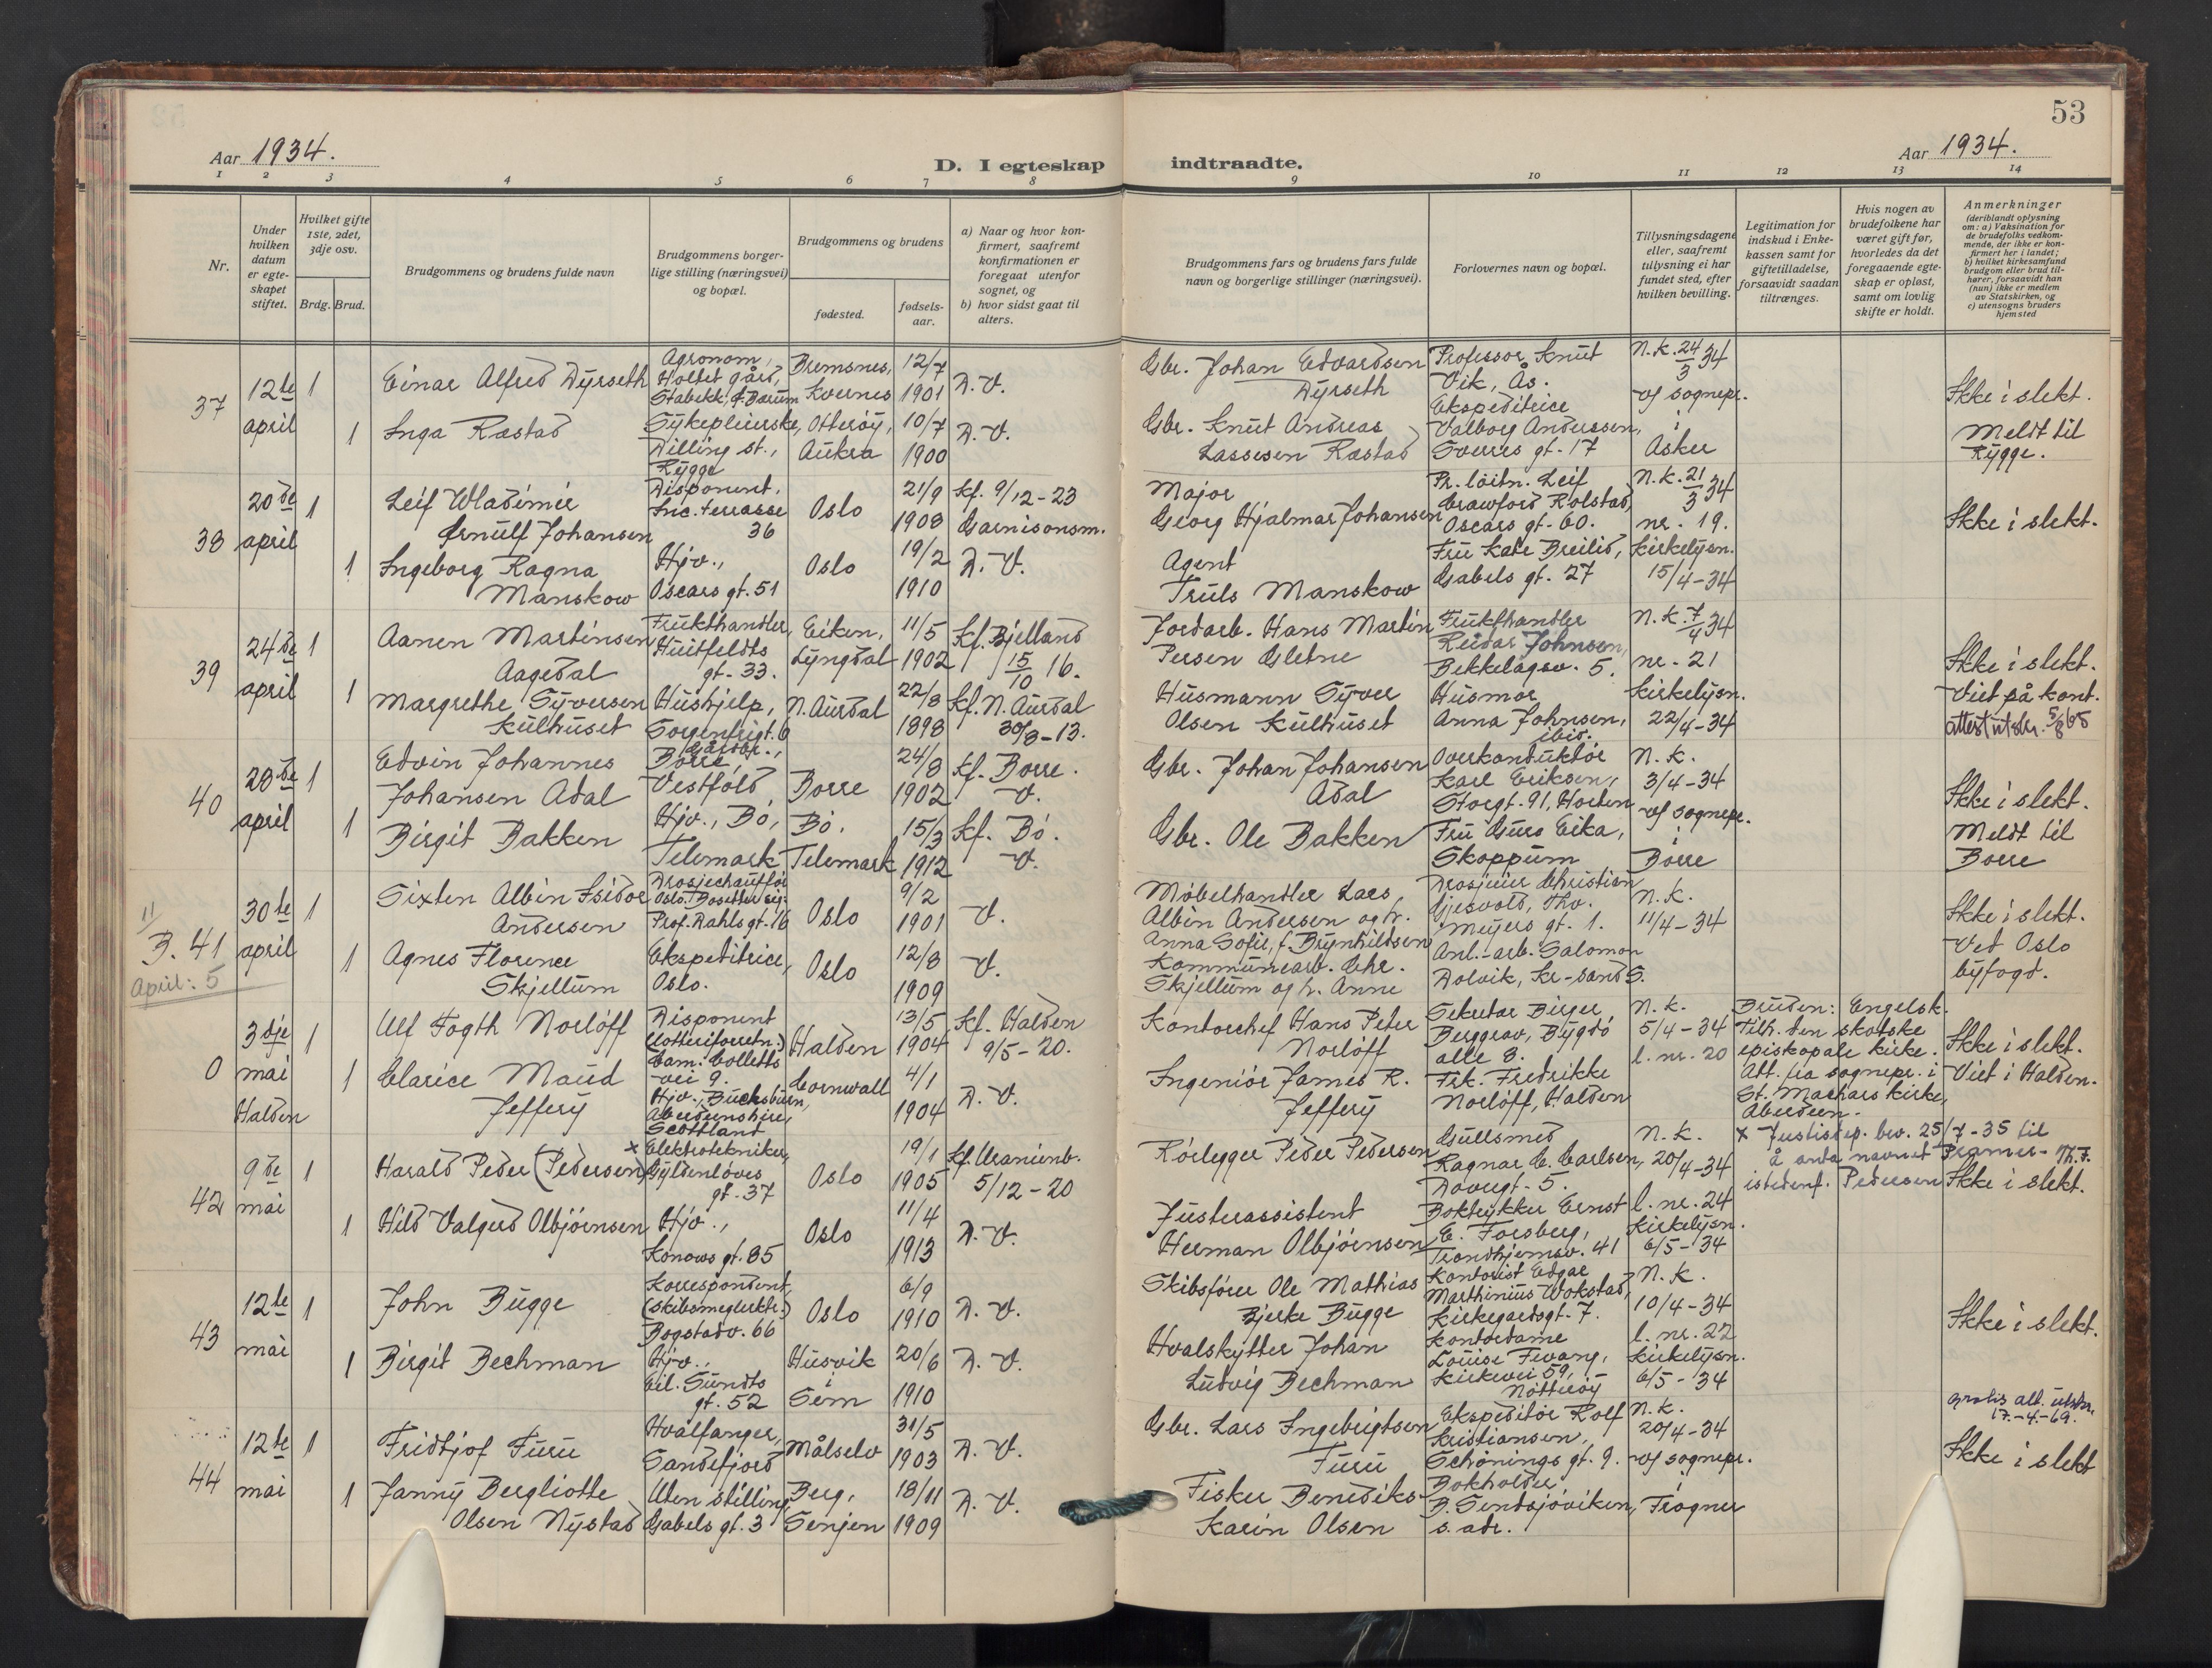 53
Aar 1934.
D. I egteskap indtraadte.
Aar 1934.
1 2 3 4 5 6 7 8 9 10 11 12 13 14
Nr.
Under hvilken datum er egte-skapet stiftet.
Hvilket gifte 1ste, 2det, 3dje osv.
Brdg. Brud.
Brudgommens og brudens fulde navn
Brudgommens borger-lige stilling (næringsvei) og bopæl.
Brudgommens og brudens
fødested.
fødsels-aar.
a) Naar og hvor kon-firmert, saafremt konfirmationen er foregaat utenfor sognet, og
b) hvor sidst gaat til alters.
Brudgommens fars og brudens fars fulde navn og borgerlige stillinger (næringsvei).
Forlovernes navn og bopæl.
Tillysningsdagene eller, saafremt tillysning ei har fundet sted, efter hvilken bevilling.
Legitimation for indskud i Enke-kassen samt for giftetilladelse, forsaavidt saadan tiltrænges.
Hvis nogen av brudefolkene har været gift før, hvorledes da det foregaaende egte-skap er opløst, samt om lovlig skifte er holdt.
Anmerkninger
(deriblandt oplysning om: a) Vaksination for de brudefolks vedkom-mende, der ikke er kon-firmert her i landet; b) hvilket kirkesamfund brudgom eller brud til-hører, forsaavidt han (hun) ikke er medlem av Statskirken, og c) utensogns bruders hjemsted
37
12te april
1
Einar Alfred Dyrseth
Agronom, Holtet gård, Stabekk, Ø. Bærum
Bremsnes, Kvernes
12/7 1901
D. V.
Gbr. Johan Edvardsen Dyrseth
Professor Knut Vik, Ås.
N.k. 24/3 34
v/ sognepr. i Asker
Ikke i slekt.
Meldt til Rygge.
1
Inga Ræstad
Sykepleierske, Dilling st., Rygge
Otterøy, Aukra
10/7 1900
D. V.
Gbr. Knut Andreas Lassesen Ræstad
Ekspeditrice Valborg Anderssen, Sverres gt. 17
38
20de april
1
Leif Wladimir Ørnulf Johansen
Disponent, Inc. terrasse 36
Oslo
21/9 1908
kf. 9/12-23 Garnisonsm.
Major Georg Hjalmar Johansen
Pr. löitn. Leif Crawford Rolstad, Oscars gt. 60.
N.k. 21/3 34
nr. 19.
Kirkelysn. 15/4-34
Ikke i slekt.
1
Ingeborg Ragna Manskow
Hjv., Oscars gt. 51
Oslo
19/2 1910
D. V.
Agent Truls Manskow
Fru Kate Breilid, Gabels gt. 27
39
24de april
1
Aanen Martinsen Aagedal
Frukthandler, Huitfeldts gt. 33.
Eiken, Lyngdal
11/5 1902
kf. Bjelland 15/10 16.
Jordarb. Hans Martin Persen Gletne
Frukthandler Reidar Johnsen, Bekkelagsv. 5.
N.k. 7/4 34
nr. 21
Kirkelysn. 22/4-34
Ikke i slekt.
Viet på kont.
attest utskr. 5/8 65
1
Margrethe Syversen Kulhuset
Hushjelp, Sorgenfrigt. 6
N. Aurdal
22/8 1898
kf. N. Aurdal 30/8-13.
Husmann Syver Olsen Kulhuset
Husmor Anna Johnsen, ibid.
40
28de april
1
Edvin Johannes Johansen Adal
Gårdbr., Borre, Vestfold
Borre
24/8 1902
kf. Borre. V.
Gbr. Johan Johansen Adal
Overkonduktör Karl Eriksen, Storgt. 91, Horten
N.k. 3/4-34
v/ sognepr. i Borre
Ikke i slekt.
Meldt til Borre
1
Birgit Bakken
Hjv., Bö, Telemark
Bö, Telemark
15/3 1912
kf. Bö. V.
Gbr. Ole Bakken
Fru Guro Eika, Skoppum
11/
B. 41
April: 5
30te april
1
Sixten Albin Isidor Andersen
Drosjechaufför Oslo. Bosetter sig: Prof. Dahls gt. 16
Oslo
9/2 1901
V.
Möbelhandler Lars Albin Andersen og h. Anna Sofie, f. Brynhildsen
Drosjeeier Christian Gjesvold, Thv. Meyers gt. 1.
N.k. 11/4-34
Ikke i slekt.
Ved Oslo byfogd.
1
Agnes Florence Skjellum
Ekspeditrice, Oslo.
Oslo
12/8 1909
V.
Kommunearb. Chr. Skjellum og h. Anne
Anl.-arb. Salomon Dolvik, Kr-sand S.
0
3dje mai
Halden
1
Ulf Fogth Norlöff
Disponent (lotteriforretn.) Cam. Colletts vei 9.
Halden
13/5 1904
kf. Halden 9/5-20.
Kontorchef Hans Peter Norlöff
Sekretær Birger Berggrav, Bygdö alle 8.
N.k. 5/4-34
l. nr. 20
Bruden: Engelsk. Tilh. den skotske episkopale kirke. Att. fra sognepr. i St. Machars kirke, Aberdeen.
Ikke i slekt.
Viet i Halden.
1
Clarice Maud Jeffery
Hjv., Bucksburn, Aberdeenshire, Scottland
Cornwall
4/1 1904
D. V.
Ingeniör James R. Jeffery
Frk. Fredrikke Norlöff, Halden
42
9de mai
1
Harald Peder (Pedersen) x
Elektrotekniker, Gyldenlöves gt. 37
Oslo
19/1 1905
kf. Uranienb. 5/12-20
Rörlegger Peder Pedersen
Gullsmed Ragnar C. Carlsen, Dovregt. 5.
N.k. 20/4-34
l. nr. 24
Kirkelysn. 6/5-34
x Justisdep. bev. 25/7-35 til å anta navnet Bramer istedenf. Pedersen Th.F.
Ikke i slekt.
1
Hild Valgerd Olbjörnsen
Hjv., Konows gt. 85
Oslo
11/4 1913
D. V.
Justerassistent Herman Olbjörnsen
Boktrykker Ernst E. Forsberg, Trondhjemsv. 41
43
12te mai
1
John Bugge
Korrespondent, (skibsmeglerktr.) Bogstadv. 66
Oslo
6/9 1910
D. V.
Skibsförer Ole Mathias Bjerke Bugge
Kontorist Edgar Marthinius Wokstad, Kirkegaardsgt. 7.
N.k. 10/4-34
l. nr. 22
Kirkelysn. 6/5-34
Ikke i slekt.
1
Birgit Bechman
Hjv., Eil. Sundts gt. 52
Husvik i Sem
20/6 1910
D. V.
Hvalskytter Johan Ludvig Bechman
Kontordame Louise Fevang, Kirkevei 59, Nötteröy
44
12te mai
1
Fridtjof Furu
Hvalfanger, Sandefjord
Målselv
31/5 1903
D. V.
Gbr. Lars Ingebrigtsen Furu
Ekspeditör Rolf Kristiansen, Schönings gt. 9.
N.k. 20/4-34
v/ sognepr. i Frogner
gratis att. utskr. 17.-4.-69.
Ikke i slekt
1
Janny Bergliotte Olsen Nystad
Uten stilling, Gabels gt. 3
Berg, Senjen
18/11 1909
D. V.
Fisker Benediks Karin Olsen
Bokholder B. Sendsjöviken, s. adr.